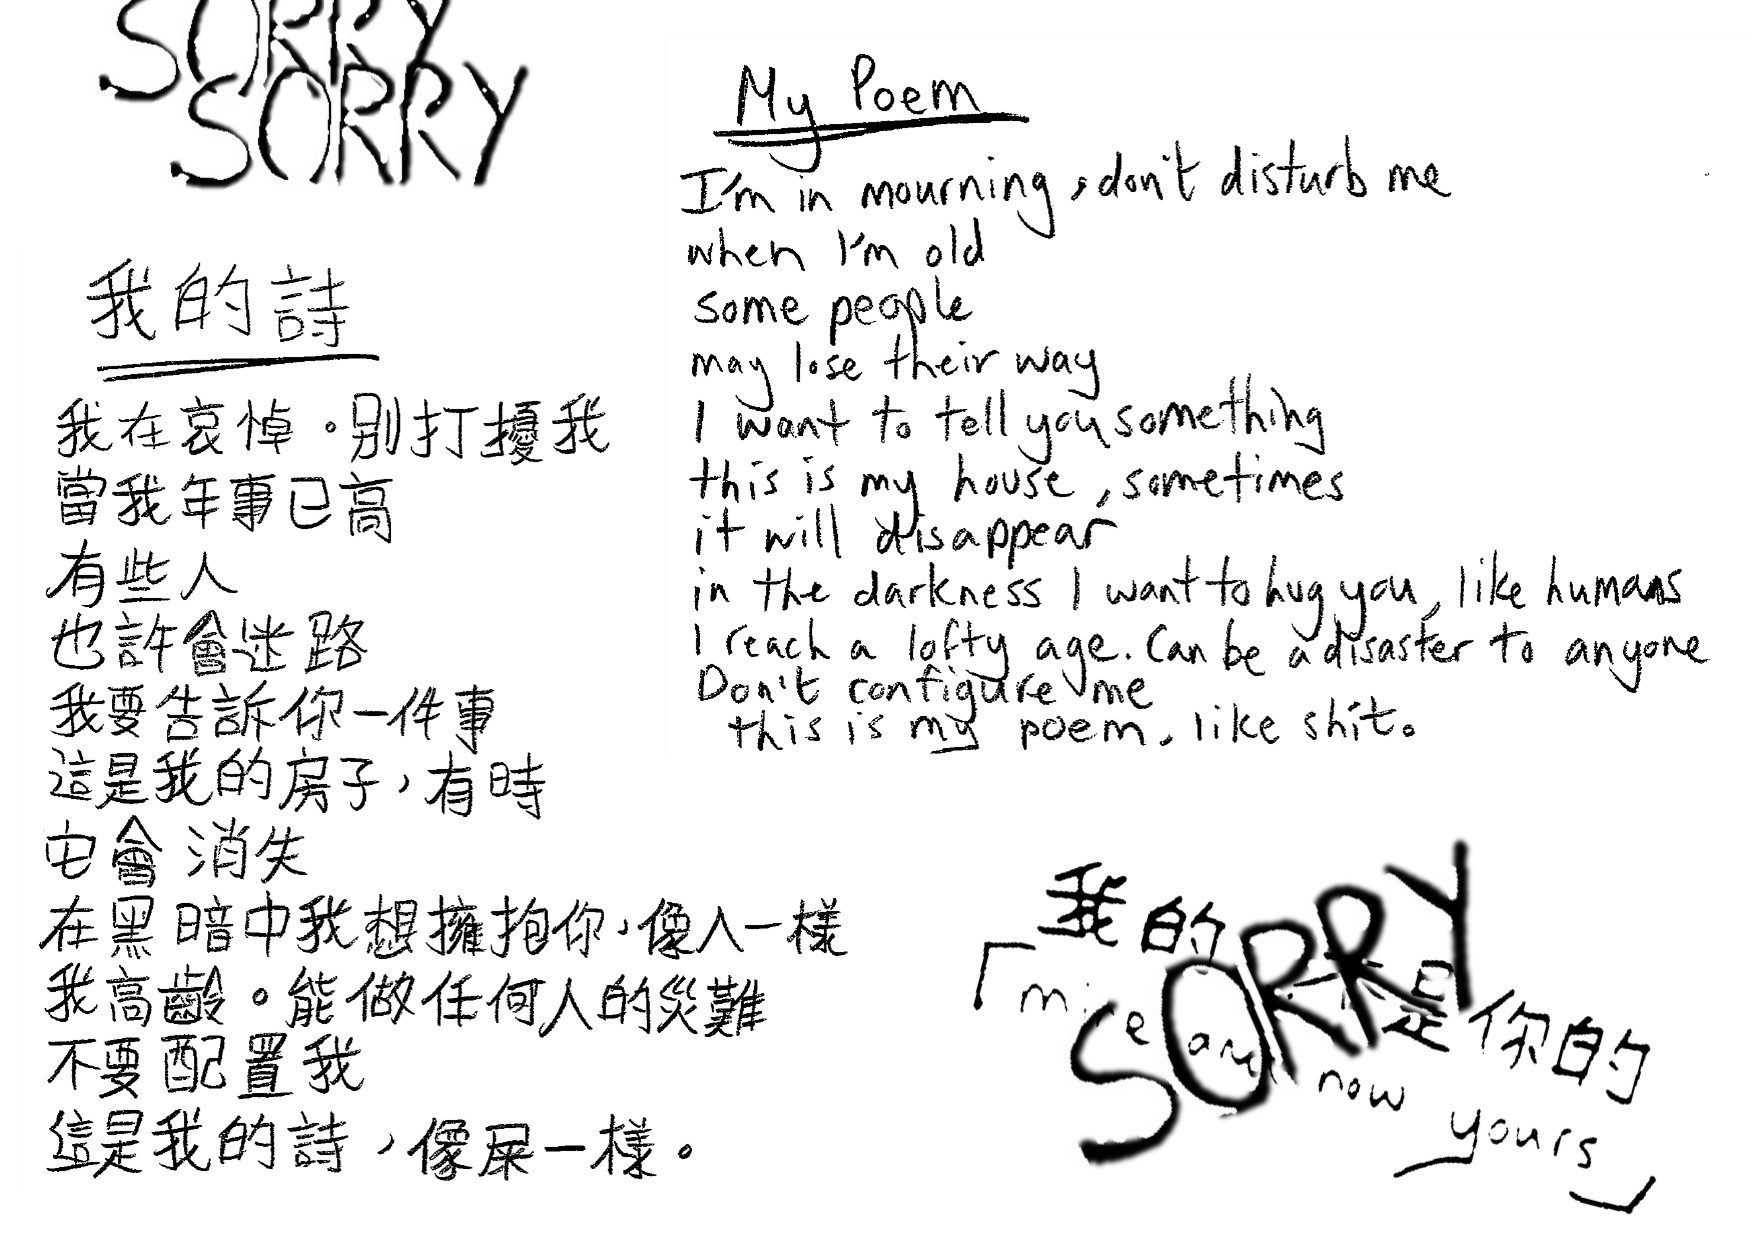 SORRY
SORRY
我的詩
我在哀悼。別打擾我
當我年事已高
有些人
也許會迷路
我要告訴你一件事
這是我的房子,有時
它會消失
在黑暗中我想擁抱你,像人一樣
我高齡。能做任何人的災難
不要配置我
這是我的詩,像屎一樣。
My Poem
I'm in mourning, don't disturb me
when I'm old
some people
may lose their way
I want to tell you something
this is my house, sometimes
it will disappear
in the darkness I want to hug you, like humans
I reach a lofty age. Can be a disaster to anyone
Don't configure me
this is my poem, like shit.
SORRY
「我的 是你的
mine now yours」